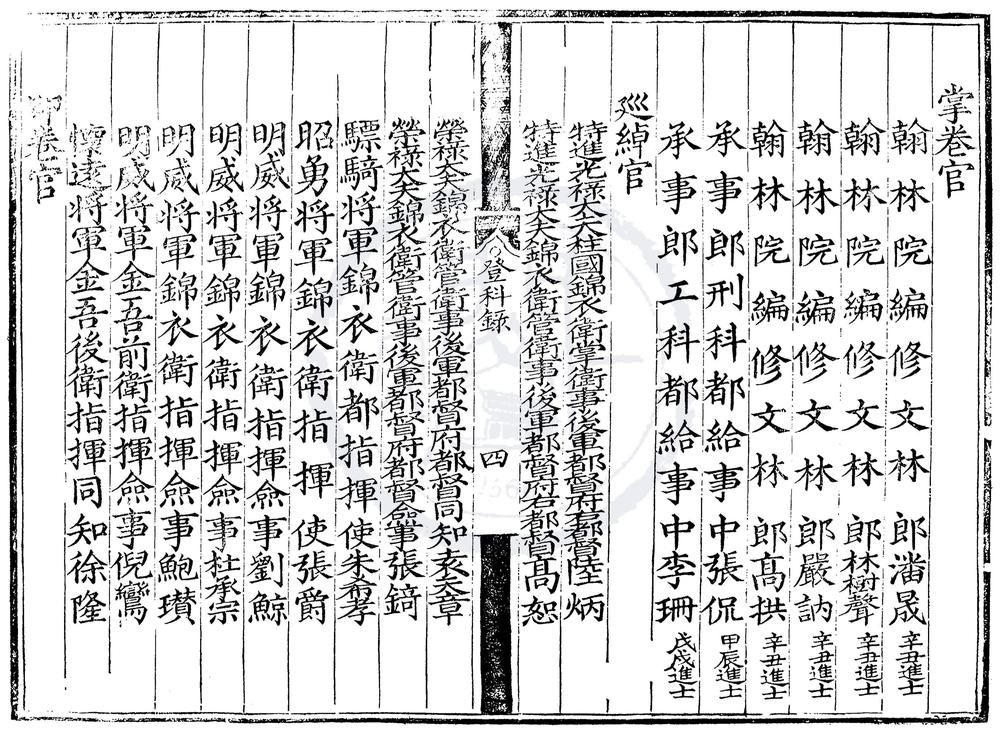 掌卷官
翰林院編修文林郎潘晟辛丑進士
翰林院編修文林郎林樹聲辛丑進士
翰林院編修文林郎嚴訥辛丑進士
翰林院編修文林郎高拱辛丑進士
承事郎刑科都給事中張侃甲辰進士
承事郎工科都給事中李珊戊戌進士
廵綽官
特進光祿大夫柱國錦衣衛掌衛事後軍都督府都督陸炳
特進光祿大夫錦衣衛管衛事後軍都督府右都督高恕
登科錄
四
榮祿大夫錦衣衛管衛事後軍都督府都督同知袁天章
榮祿大夫錦衣衛管衛事後軍都督府都督僉事張錡
驃騎將軍錦衣衛都指揮使朱希孝
昭勇將軍錦衣衛指揮使張爵
明威將軍錦衣衛指揮僉事劉鯨
明威將軍錦衣衛指揮僉事杜承宗
明威將軍錦衣衛指揮僉事鮑瓚
明威將軍金吾前衛指揮僉事倪鸞
懷遠將軍金吾後衛指揮同知徐隆
印卷官